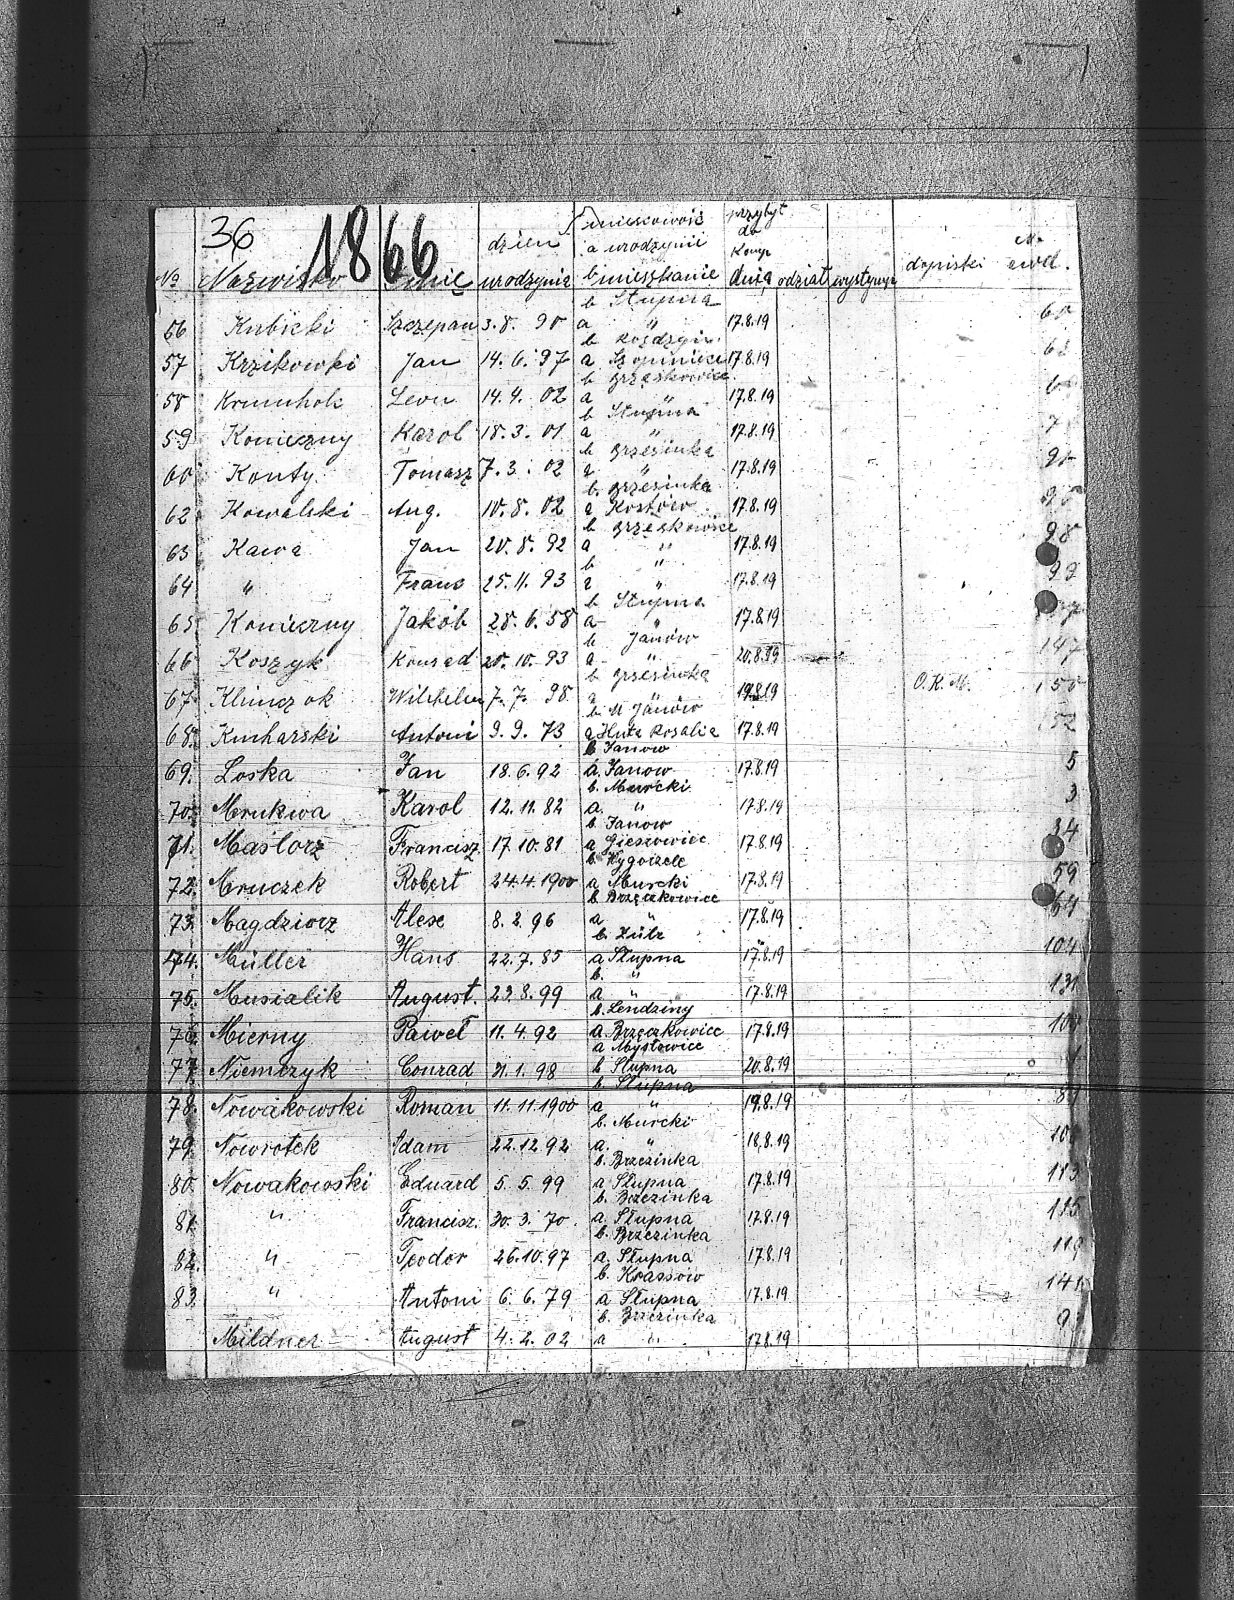 36 1866
№ Nazwisko Imię dzień urodzynia miescowość a urodzynii b mieszkanie przybył do Komp dnią odział występuje dopiski ewd.
b Słupna
56 Kubicki Szczepan 3.8. 98 a " 17.8.19 60
b Rosdzyin
57 Krzikowki Jan 14.6.97 a Szopinice 17.8.19
b Brzęskowice
58 Krumhok Leon 14.4.02 a " 17.8.19
b Słupna
59 Konieczny Karol 18.3.01 a " 17.8.19
b Brzesinka
60 Konty Tomasz 7.3.02 a " 17.8.19
b. Brzesinka
62 Kowalski Aug. 10.8.02 a Kostów 17.8.19
b Brzęskowice
63 Kawa Jan 20.8.92 a " 17.8.19 98
b "
64 " Frans 25.11.93 a " 17.8.19 99
b Słupna
65 Konieczny Jakób 28.6.58 a " 17.8.19
b Janów
66 Koszyk Konrad 20.10.93 a " 20.8.19 147
b Brzesinka
67 Klimczok Wilhelm 7.7.98 a " 19.8.19 O.K.M. 150
b N Janów
68. Kucharski Antoni 9.9.73 a Huta Rosalia 17.8.19 152
b Janow
69. Loska Jan 18.6.92 a. Janow 17.8.19 5
b. Murcki
70. Mrukwa Karol 12.11.82 a. " 17.8.19 3
b. Janow
71. Maślorz Francisz. 17.10.81 a Gieszowiec 17.8.19 34
b. Wygoizele
72. Mruczek Robert 24.4.1900 a Murcki 17.8.19 59
b. Brzęczkowice
73. Magdziorz Alese 8.2.96 a " 17.8.19 64
b. Zülz
74. Müller Hans 22.7.85 a Słupna 17.8.19 104
b. "
75. Musialik August. 23.8.99 a " 17.8.19 131
b. Lendziny
76. Mierny Paweł 11.4.92 a. Brzęczkowice 17.8.19
a Mysłowice
77. Niemczyk Conrad 21.1.98 b Słupna 20.8.19
b. Słupna
78. Nowakowski Roman 11.11.1900 a " 19.8.19 89
b. Murcki
79. Nowrotek Adam 22.12 92 a. " 18.8.19
b. Brzezinka
80. Nowakowski Eduard 5.5.99 a Słupna 17.8.19 113
b. Brzezinka
81. " Francisz. 30.3.70. a. Słupna 17.8.19 115
b. Brzezinka
82. " Teodor 26.10.97 a. Słupna 17.8.19 119
b. Krassow
83. " Antoni 6.6.79 a Słupna 17.8.19
b. Brzezinka
Mildner August 4.2.02 a " 17.8.19